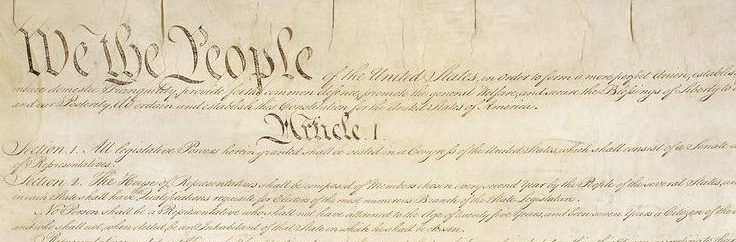 We the People of the United States, in Order to form a more perfect Union, establish
insure domestic Tranquility, provide for the common defence, promote the general Welfare, and secure the Blessings of Liberty to
and our Posterity, do ordain and establish this Constitution for the United States of America.
Article I.
Section 1. All legislative Powers herein granted shall be vested in a Congress of the United States, which shall consist of a Senate
of Representatives.
Section 2. The House of Representatives shall be composed of Members chosen every second Year by the People of the several States, and
in each State shall have Qualifications requisite for Electors of the most numerous Branch of the State Legislature.
No Person shall be a Representative who shall not have attained to the Age of twenty five Years, and been seven Years a Citizen of the
and who shall not, when elected, be an Inhabitant of that State in which he shall be chosen.